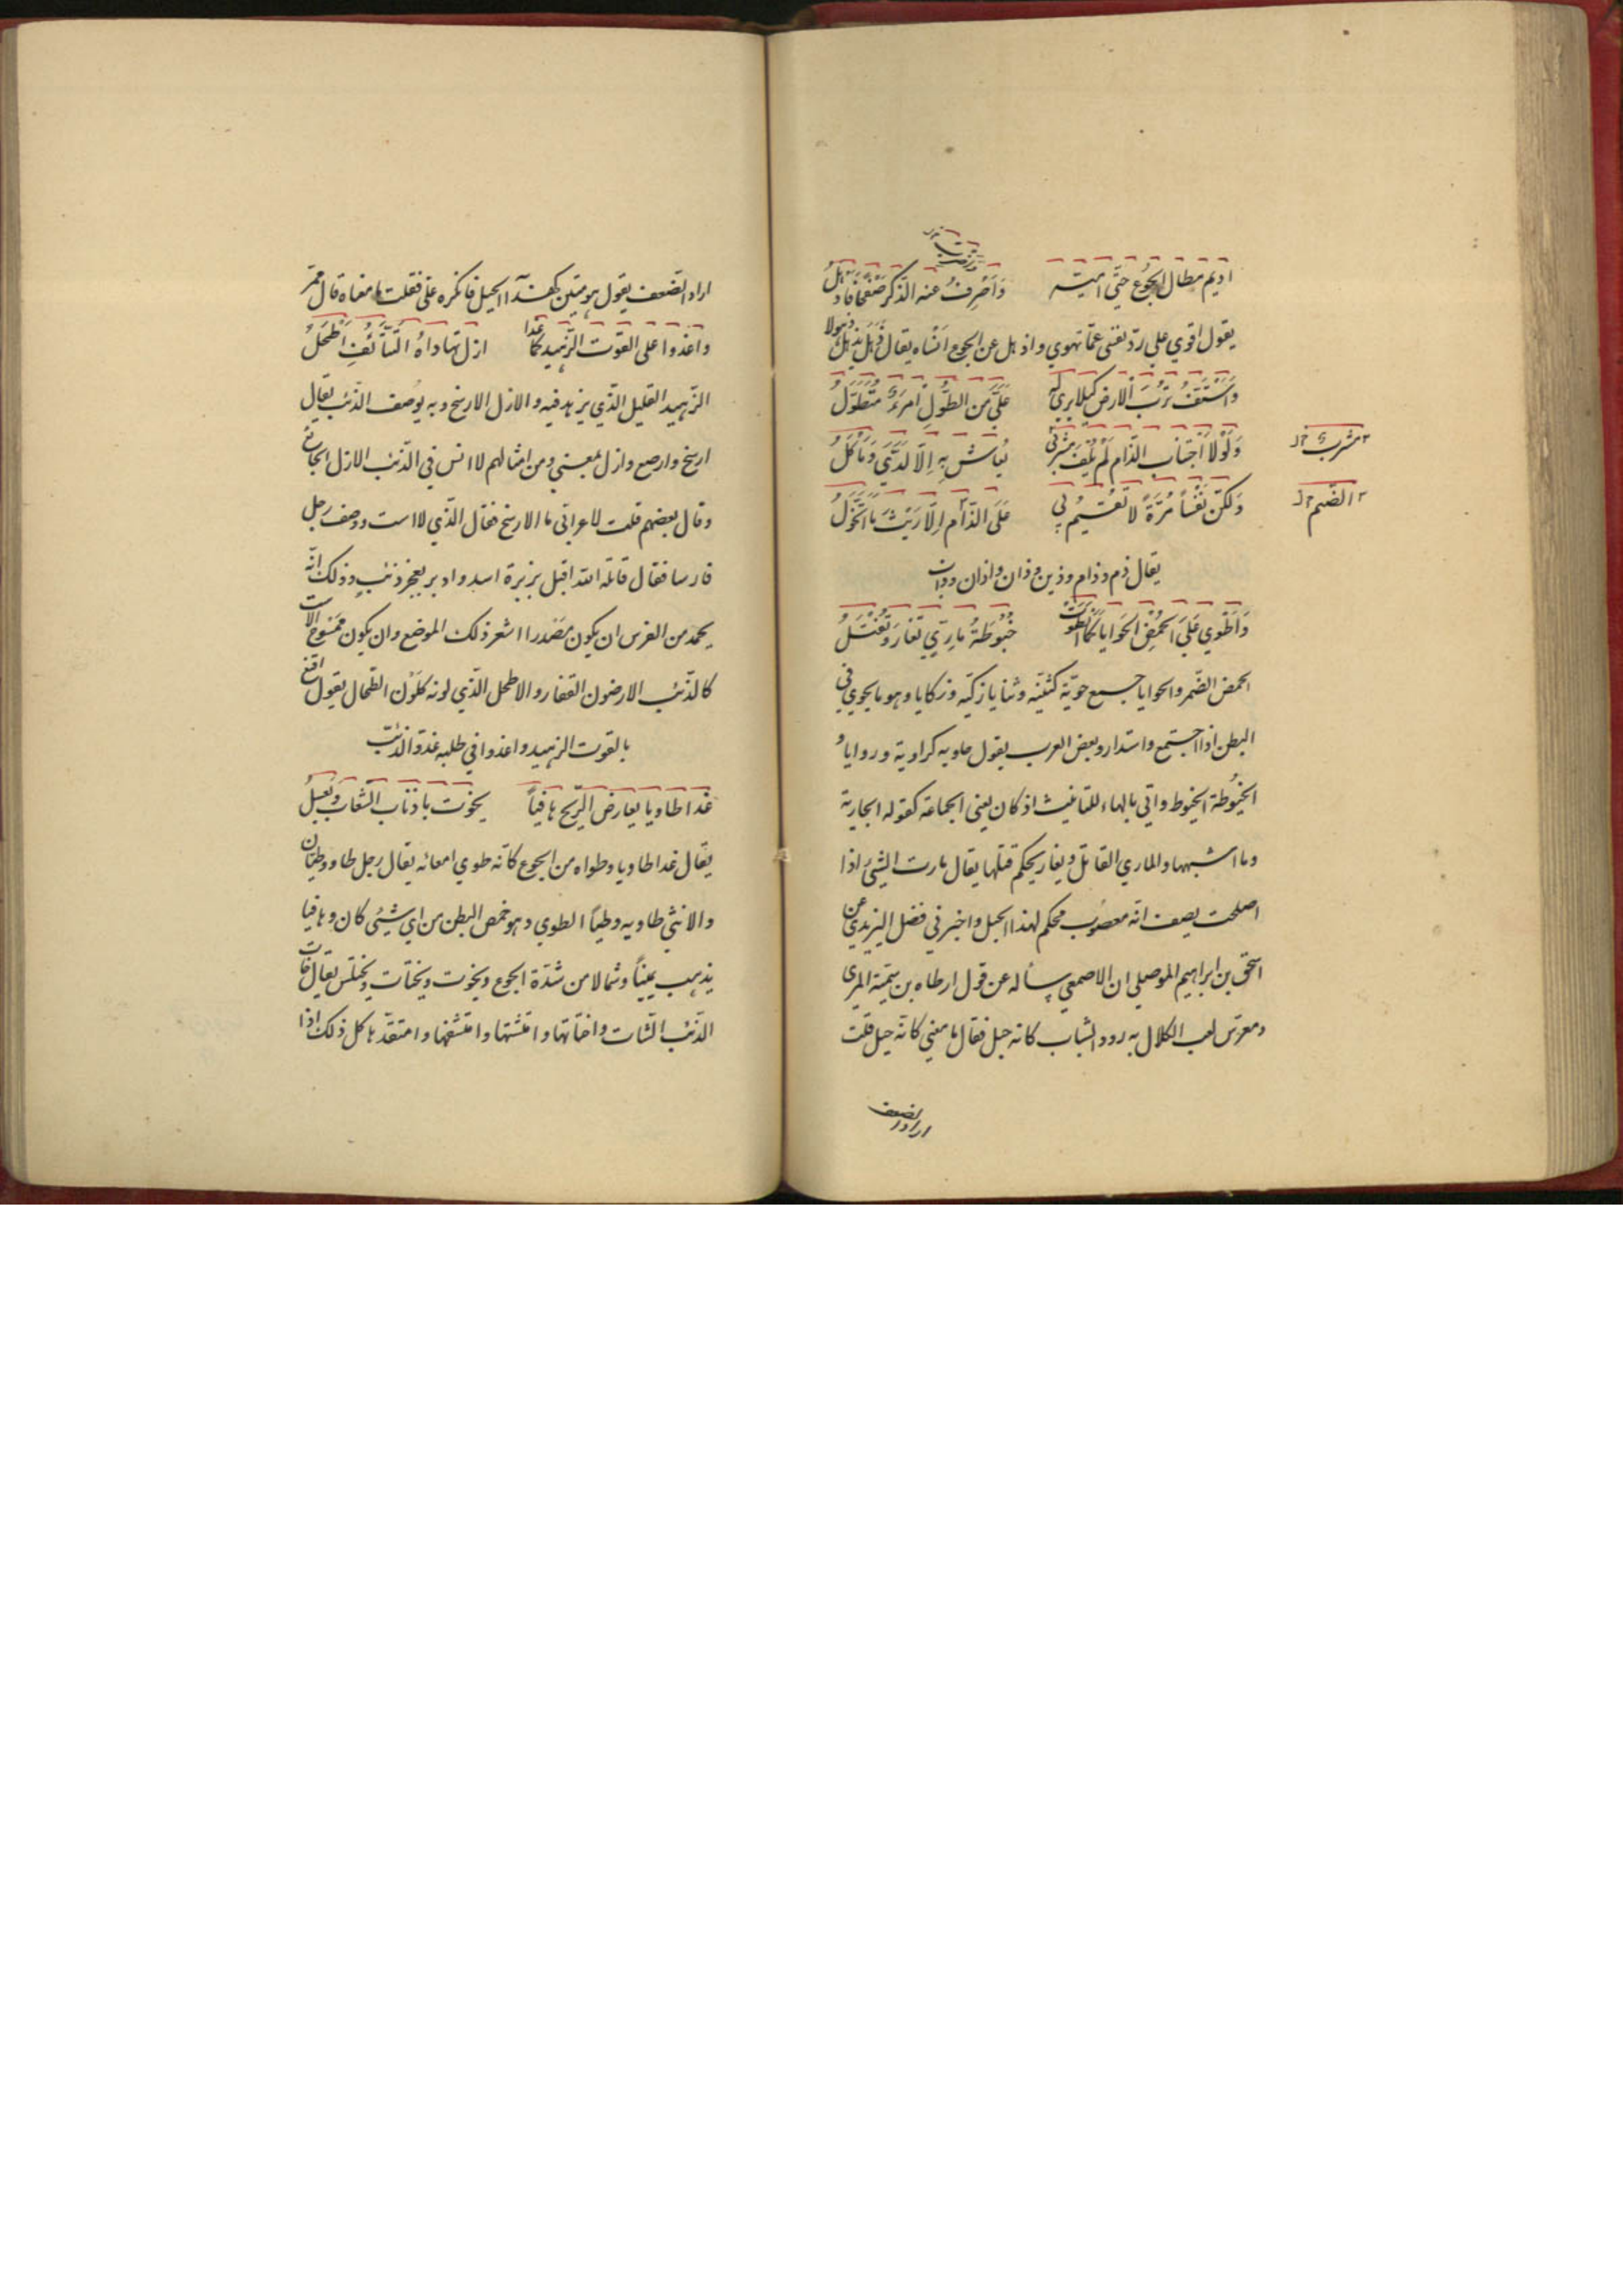 اديم مطال الجوع حتي اميته وَاَضْرِفُ عنه الذكر صَفْحًا فَاَذْهَلُ
يقول اقوي علي ردّ نفسي عمّا تهوي واذهل عن الجوع انساه يقال ذَهَل يذهل ذهولا
وَاَسْتَفُّ تُرْبَ الارض كيلا يري له عَلَيَّ مَن الطَّوْلِ امرءٌ مُتَطَوّلُ
وَلَوْلَا اجْتِنَاب الذام لَمْ يُلْفَ مَشْرَبٌ يُعَاش بِهِ اِلّا لَدَيَّ وَمَأكَلُ
مشرب
وَلَكِنّ نَفْساً مُرَّةً لا تُقيمُ بي عَلَي الذَّام اِلّا رَيْثَ مَا اَتَحَوَّلُ
الضيم
يقال ذم وذام وذين وذان واذان
وَاَطْوِي عَلَي الخُمْصِ الحَوايا كَمَا انْطَوَتْ خُيُوطَةُ مارِيٍّ تُغَارُ وَتُفْتَلُ
الخمص الضمر والحوايا جمع حويّة كثنيّه وثنايا زكيّه وزكايا وهو ما يحوي في
البطن اذا اجتمع واستدار وبعض العرب يقول حاويه كراوية وروايا و
الخيُوطة الخيوط واتي بالهاء للتانيث اذ كان يعني الجماعة كقوله الجارية
وما اشبهها والماري الفاتل ويغار يحكم فتلها يقال مارت الشي اذا
اصلحت يصف انه معصوب محكم لهذا الحبل واخبرني فضل اليزيدي عن
اسحق بن ابراهيم الموصلي ان الاصمعي سأله عن قول ارطاه بن سميّة المري
ومعرّس لعب الكلال به رود الشباب كانه حبل فقال ما معني كانّه حبل قلت
اراد الضعف
اراد الضعف يقول هو متين كهذا الحبل فانكره علي فقلت ما معناه قال
واغدوا علي القوت الزهيد كما غدا ازل تهاداهُ التّنَائُفُ اَطْحَلُ
الزهيد القليل الذي يزهد فيه والازل الارسح وبه يوصف الذئب يقال
ارسح وارصع وازل بمعني ومن امثالهم لا انس في الذئب الازل الجائع
وقال بعضهم قلت لاعرابي ما الارسح فقال الذي لا است ووصف رجل
فارسا فقال قاتله الله اقبل بزبرة اسد وادبر بعجز ذئب وذلك انه
يحمد من الفرس ان يكون مصدرا اشعر ذلك الموضع وان يكون ممسوح الاست
كالذئب الارضون القفار والاطحل الذي لونه كلون الطحال يقول اقنع
بالقوت الزهيد واغدوا في طلبه غدو الذئب
غدا طاويا يعارض الريح هافياً يخوت باذناب الشعاب ويعسلُ
يقال غدا طاويا وطواه من الجوع كانه طوي امعائه يقال رجل طاو وطيّان
والانثي طاويه وطيّا الطوي وهو خمص البطن من اي شيئ كان وهافيا
يذهب يميناً وشمالا من شدّة الجوع ويخوت ويختات ويختلس يقال خات
الذئب الشاة واختاتها و